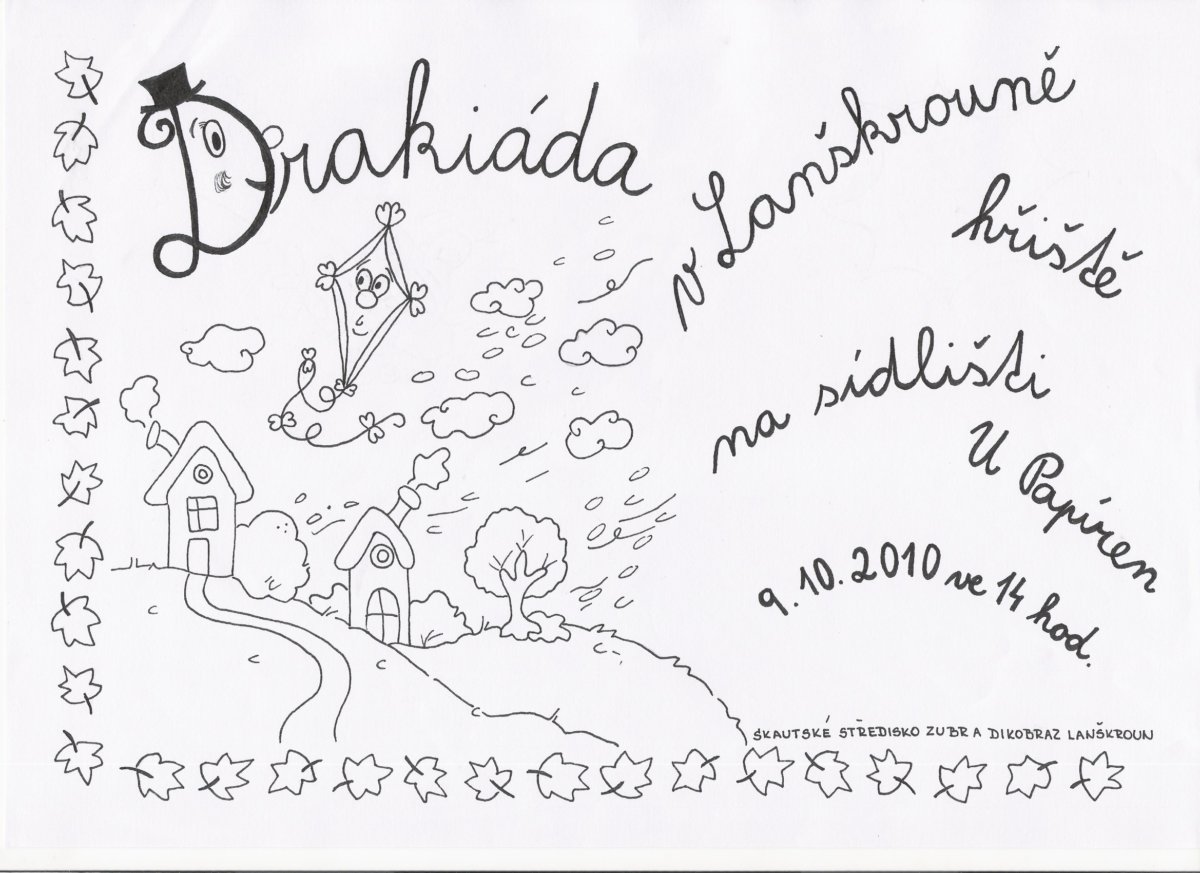 Drakiáda
v Lanškrouně
hřiště
na sídlišti
U Papíren
9.10.2010 ve 14 hod.
SKAUTSKÉ STŘEDISKO ZUBR A DIKOBRAZ LANŠKROUN